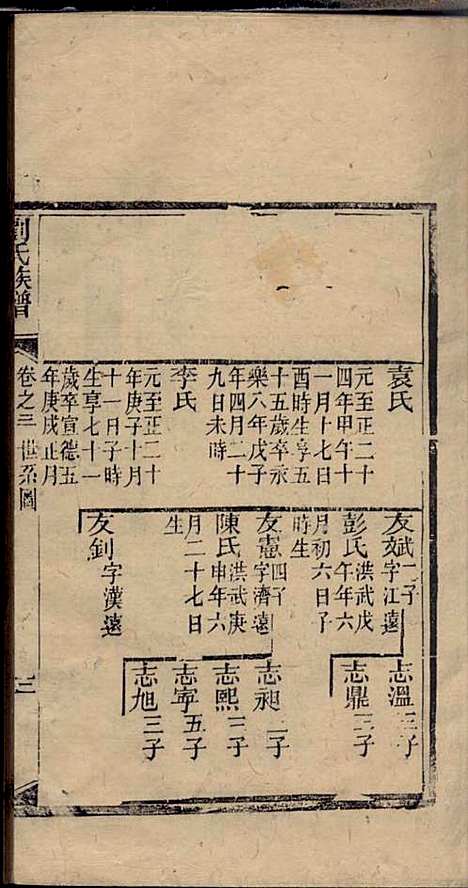 袁氏
元至正二十
四年甲午十
一月十七日
酉時生享五
十五歲卒永
樂八年戊子
年四月二十
九日未時
李氏
元至正二十
年庚子十月
十一月子時
生享七十一
歲卒宣德五
年庚戌正月
友斌 二子
字江遠
彭氏 洪武戊
午年六
月初六日子
時生
友憲 四子
字濟遠
陳氏 洪武庚
申年六
月二十七日
生
友釗 字漢遠
志溫 三子
志鼎 三子
志昶 二子
志熙 三子
志寧 五子
志旭 三子
劉氏族譜
卷之三 世系圖
三